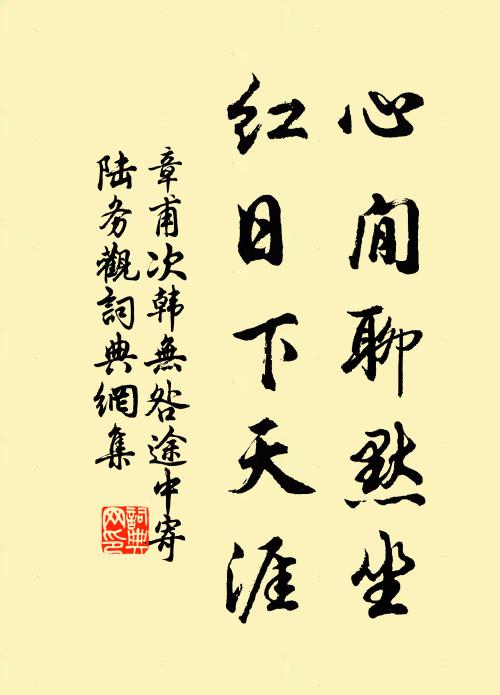 心閒聊默坐
红日下天涯
章甫次韩無咎途中寄
陆务觀詞典網集
詞典网印